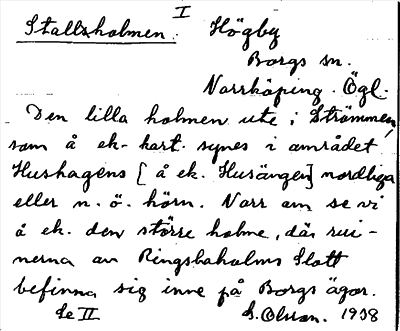 I
Stallsholmen. Högby
Borgs sn.
Norrköping. Ögl.
Den lilla holmen ute i Strömmen,
som å ek. kart. synes i området
Hushagens [å ek. Husängen] nordliga
eller n. ö. hörn. Norr om se vi
å ek. den större holme, där rui-
nerna av Ringsbaholms Slott
befinna sig inne på Borgs ägor.
Se II S. Olsson. 1938